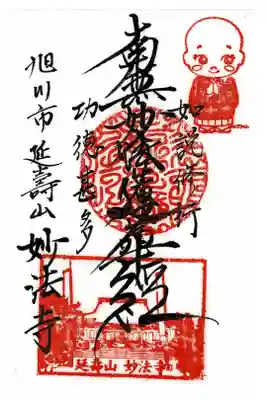 如説修行
南無妙法蓮華経
功徳甚多
旭川市延壽山妙法寺
延壽山 妙法寺